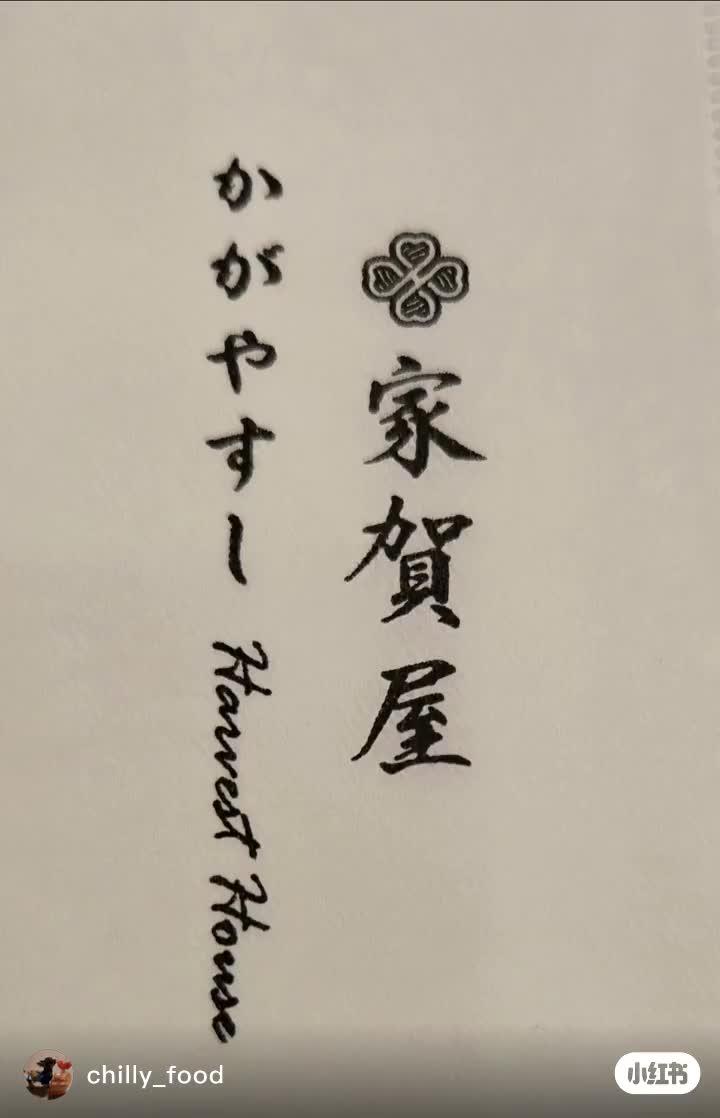 家賀屋
かがやすー Harvest House
chilly_food
小红书